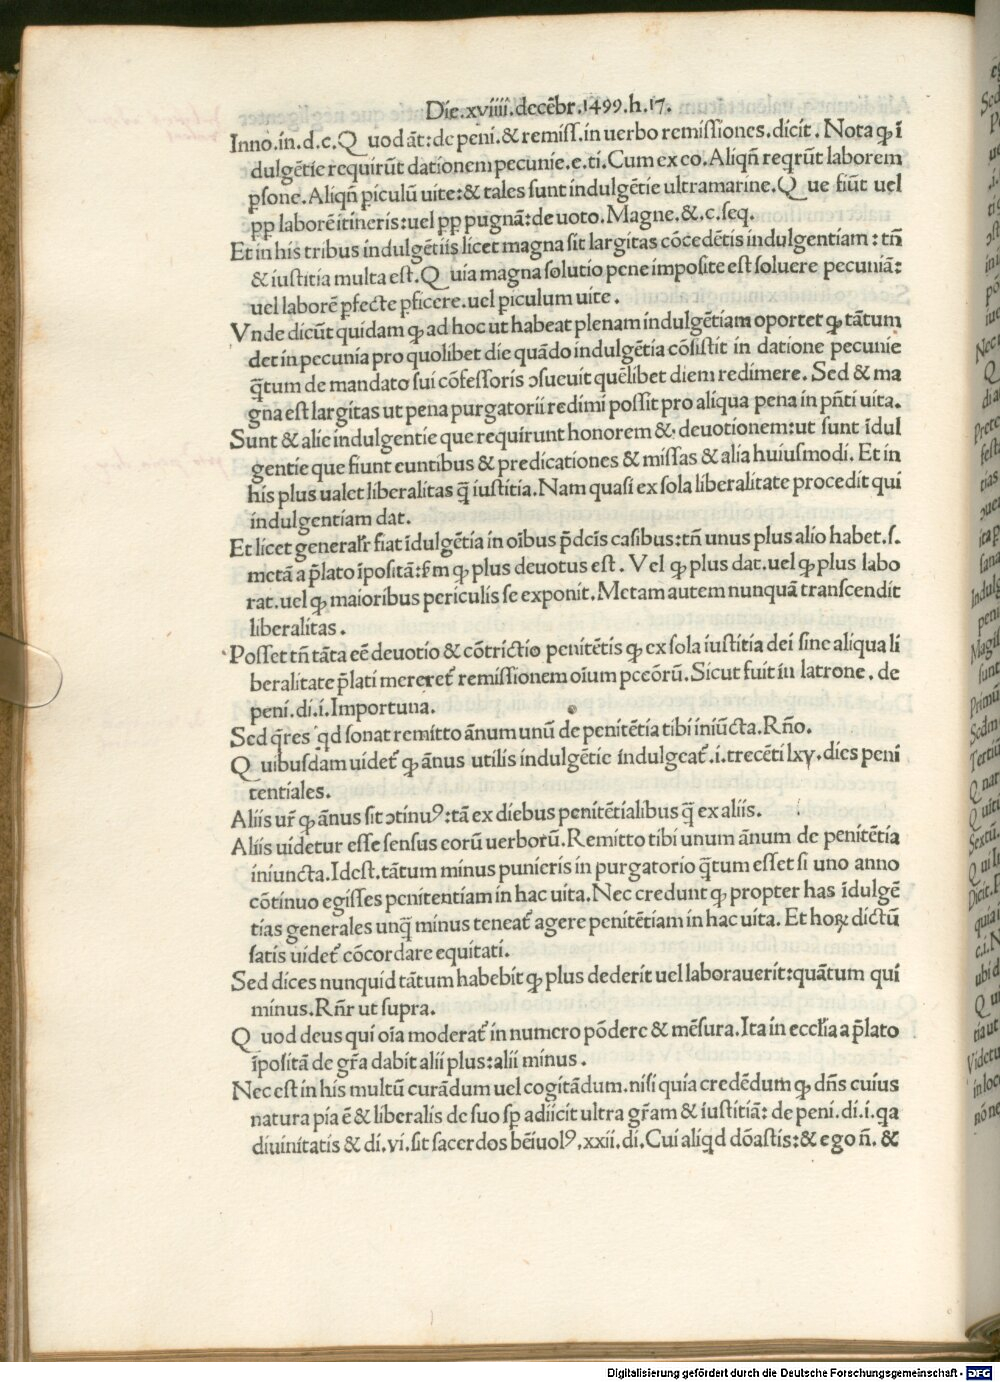 Die.xviiii.decēbr.1499.h.17.
Inno.in.d.c.Q uod āt:de peni.&remiss.in uerbo remissiones.dicit. Nota ꝙ ī
dulgētie requirūt dationem pecunie.e.ti.Cum ex eo.Aliqn̄ reqrūt laborem
ꝑsone.Aliqn̄ ꝑiculū uite:& tales sunt indulgētie ultramarine.Q ue fiūt uel
ꝓꝑ laborē itineris:uel ꝓꝑ pugnā:de uoto.Magne.&.c.seq.
Et in his tribus indulgētiis licet magna sit largitas cōcedētis indulgentiam: tn̄
& iustitia multa est.Q uia magna solutio pene imposite est soluere pecuniā:
uel laborē ꝑfecte ꝑficere.uel ꝑiculum uite.
Vnde dicūt quidam ꝙ ad hoc ut habeat plenam indulgētiam oportet ꝙ tātum
det in pecunia pro quolibet die quādo indulgētia cōsistit in datione pecunie
q̄tum de mandato sui cōfessoris ɔsueuit quēlibet diem redimere. Sed & ma
gna est largitas ut pena purgatorii redimi possit pro aliqua pena in pn̄ti uita.
Sunt & alie indulgentie que requirunt honorem & deuotionem:ut sunt īdul
gentie que fiunt euntibus & predicationes & missas & alia huiusmodi. Et in
his plus ualet liberalitas q̄ iustitia.Nam quasi ex sola liberalitate procedit qui
indulgentiam dat.
Et licet generalr̄ fiat īdulgētia in oībus p̄dcīs casibus:tn̄ unus plus alio habet.s.
metā a p̄lato īpositā:s̄m ꝙ plus deuotus est. Vel ꝙ plus dat.uel ꝙ plus labo
rat.uel ꝙ maioribus periculis se exponit.Metam autem nunquā transcendit
liberalitas.
Posset tn̄ tāta eē deuotio & cōtrictio penitētis ꝙ ex sola iustitia dei sine aliqua li
beralitate p̄lati mereret̄ remissionem oīum pccōrū.Sicut fuit in latrone. de
peni.di.i.Importuna.
Sed q̄res qd sonat remitto ānum unū de penitētia tibi iniūcta.Rn̄o.
Q uibusdam uidet̄ ꝙ ānus utilis indulgētie indulgeat̄.i.trecēti lxv.dies peni
tentiales.
Aliis ur̄ ꝙ ānus sit ɔtinuꝰ:tā ex diebus penitētialibus q̄ ex aliis.
Aliis uidetur esse sensus eorū uerborū.Remitto tibi unum ānum de penitētia
iniuncta.Idest.tātum minus punieris in purgatorio q̄tum esset si uno anno
cōtinuo egisses penitentiam in hac uita.Nec credunt ꝙ propter has īdulgē
tias generales unq̄ minus teneat̄ agere penitētiam in hac uita. Et hoꝝ dictū
satis uidet̄ cōcordare equitati.
Sed dices nunquid tātum habebit ꝙ plus dederit uel laborauerit:quātum qui
minus.Rn̄r ut supra.
Q uod deus qui oīa moderat̄ in numero pōdere & mēsura.Ita in ecclīa a p̄lato
īpositā de gr̄a dabit alii plus:alii minus.
Nec est in his multū curādum uel cogitādum.nisi quia credēdum ꝙ dn̄s cuius
natura pia ē & liberalis de suo sꝑ adiicit ultra gr̄am & iustitiā: de peni.di.i.qa
diuinitatis & di.vi.sit sacerdos bēiuolꝰ.xxii.di.Cui aliqd dōastis:& ego n̄. &
Digitalisierung gefördert durch die Deutsche Forschungsgemeinschaft - DFG